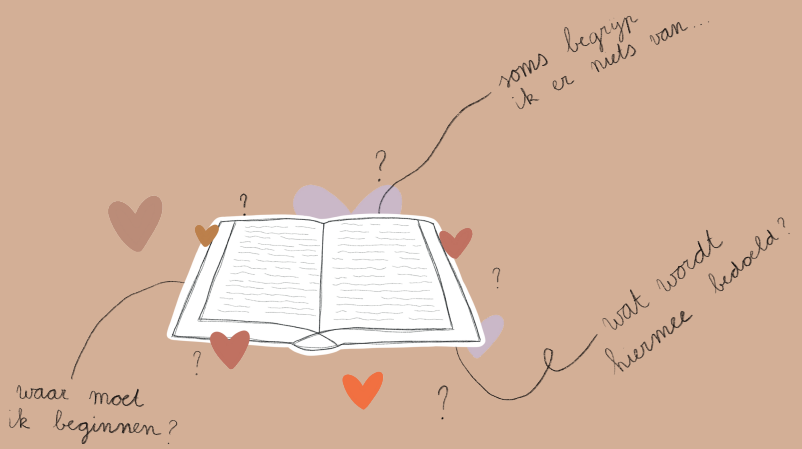 soms begrijp
ik er niets van...
?
?
?
wat wordt
hiermee bedoeld?
?
?
waar moet
ik beginnen?